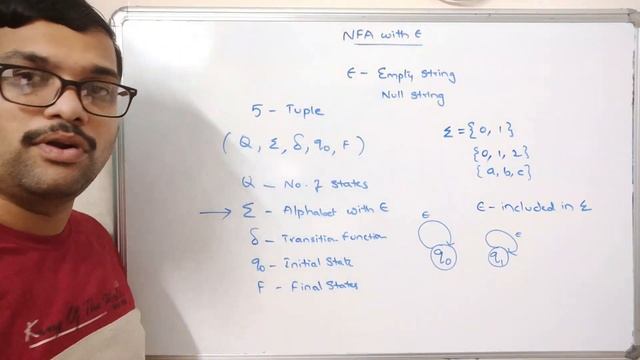 NFA with ϵ
ϵ - Empty string
Null string
5 - Tuple
( Q, Σ, δ, q0, F )
Q - No. of states
→ Σ - Alphabet with ϵ
δ - Transition function
q0 - Initial State
F - Final States
Σ = {0, 1}
{0, 1, 2}
{a, b, c}
ϵ - included in Σ
ϵ
ϵ
q0
q1
King Of The